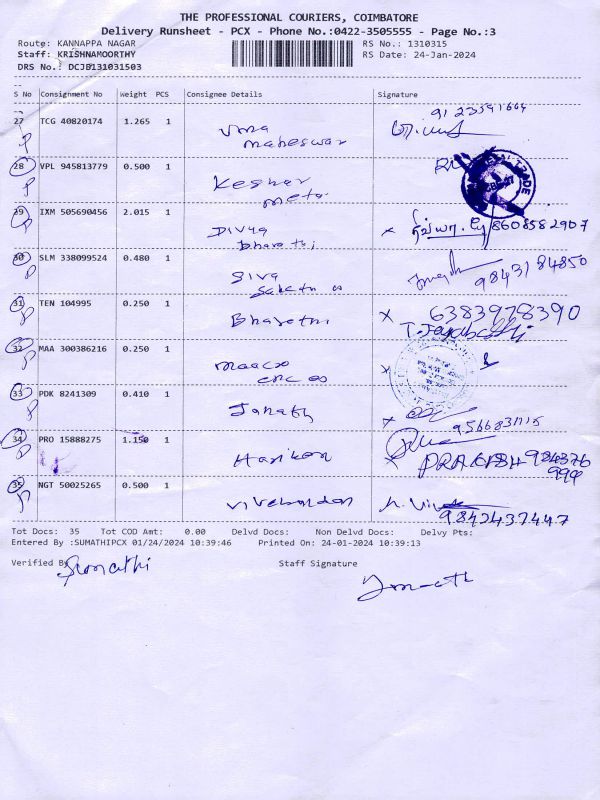 THE PROFESSIONAL COURIERS, COIMBATORE
Delivery Runsheet - PCX - Phone No.:0422-3505555 - Page No.:3
Route: KANNAPPA NAGAR RS No.: 1310315
Staff: KRISHNAMOORTHY RS Date: 24-Jan-2024
DRS No.: DCJB131031503
S No Consignment No Weight PCS Consignee Details Signature
27 TCG 40820174 1.265 1 Uma
maheswar
28 VPL 945813779 0.500 1 Keshav
meta
TRADE
29 IXM 505690456 2.015 1 Divya
bharathi
x திவ்யா. 8608582907
30 SLM 338099524 0.480 1 Siva
9843184850
31 TEN 104995 0.250 1 Bharathi x 6383978390
32 MAA 300386216 0.250 1 x
33 PDK 8241309 0.410 1 x
9566831115
34 PRO 15888275 1.150 1 x PRAKASH 984376
999
35 NGT 50025265 0.500 1
9842437447
Tot Docs: 35 Tot COD Amt: 0.00 Delvd Docs: Non Delvd Docs: Delvy Pts:
Entered By :SUMATHIPCX 01/24/2024 10:39:46 Printed On: 24-01-2024 10:39:13
Verified By Sumathi Staff Signature